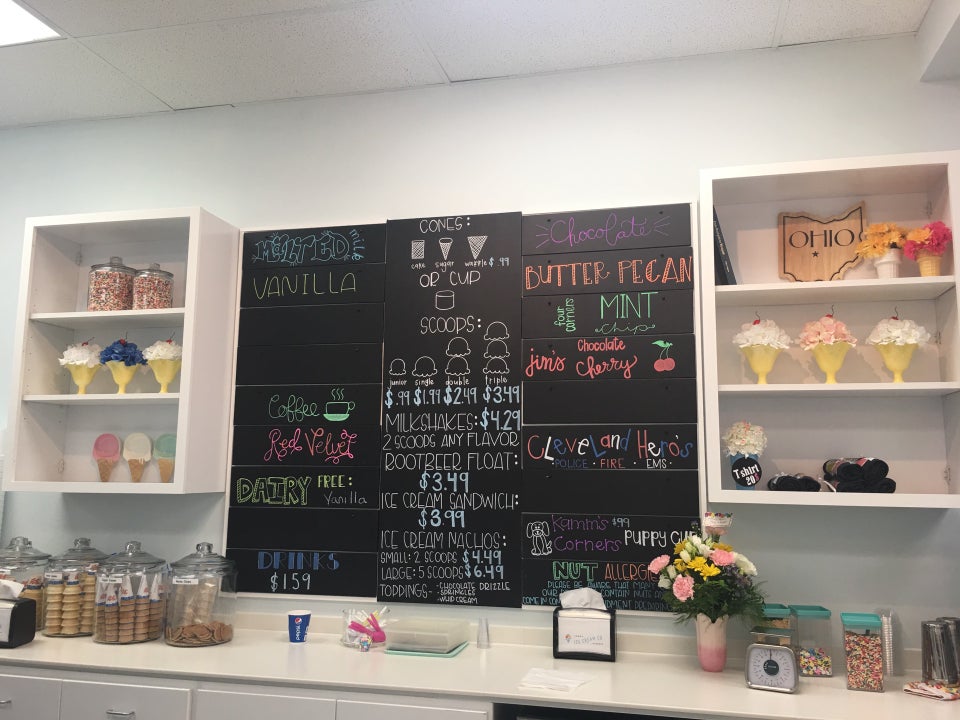 MELTED
VANILLA
Coffee
Red Velvet
DAIRY FREE:
Vanilla
DRINKS
$1.59
CONES:
cake sugar waffle $.99
OR CUP
SCOOPS:
junior single double triple
$.99 $1.99 $2.49 $3.49
MILKSHAKES: $4.29
2 SCOOPS ANY FLAVOR
ROOTBEER FLOAT:
$3.49
ICE CREAM SANDWICH:
$3.99
ICE CREAM NACHOS:
SMALL: 2 SCOOPS $4.49
LARGE: 5 SCOOPS $6.49
TOPPINGS- -CHOCOLATE DRIZZLE
-SPRINKLES
-WHIP CREAM
Chocolate
BUTTER PECAN
four corners MINT
chip
Jim's Chocolate
cherry
CLEVELAND HERO'S
POLICE · FIRE · EMS ·
Kamm's $.99
Corners PUPPY CU
NUT ALLERGIE
PLEASE BE AWARE THAT MANY
OUR CONTAIN NUTS
COME IN CON
OHIO
Tshirt
20
pepsi
ICE CREAM